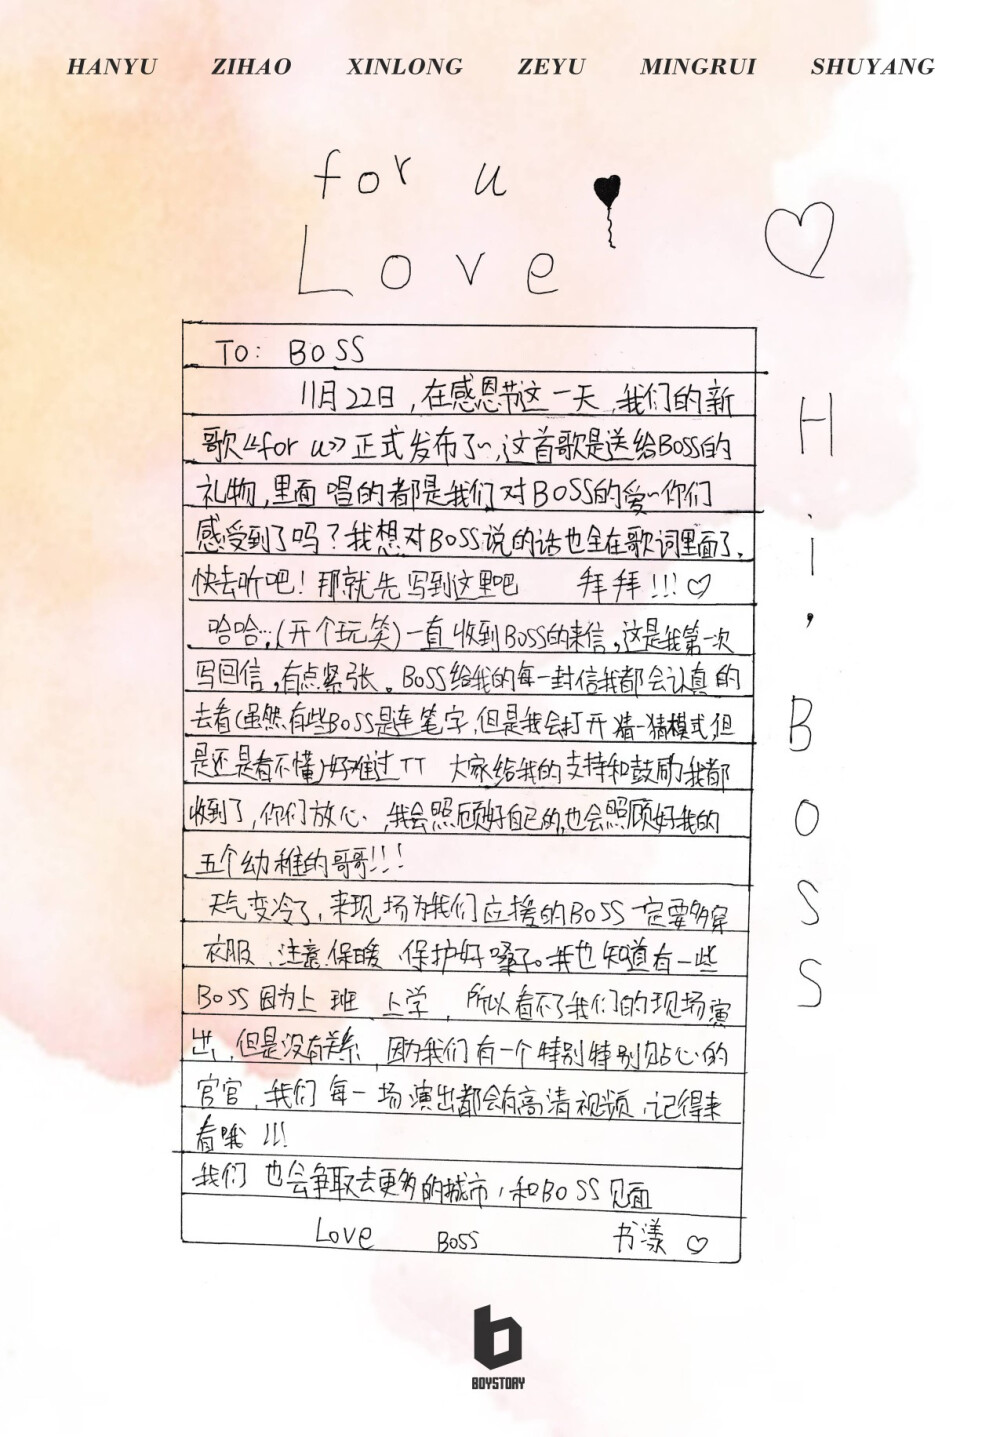 HANYU ZIHAO XINLONG ZEYU MINGRUI SHUYANG
for u
Love
TO: BOSS
11月22日,在感恩节这一天,我们的新
歌《for u》正式发布了~,这首歌是送给BOSS的
礼物,里面唱的都是我们对BOSS的爱~你们
感受到了吗?我想对BOSS说的话也全在歌词里面了,
快去听吧!那就先写到这里吧 拜拜!!!♡
哈哈:;(开个玩笑)一直收到BOSS的来信,这是我第一次
写回信,有点紧张。BOSS给我的每一封信我都会认真的
去看(虽然有些BOSS是连笔字,但是我会打开猜一猜模式,但
是还是看不懂)好难过TT 大家给我的支持和鼓励我都
收到了,你们放心,我会照顾好自己的,也会照顾好我的
五个幼稚的哥哥!!!
天气变冷了,来现场为我们应援的BOSS一定要多穿
衣服、注意保暖、保护好嗓子。我也知道有一些
BOSS因为上班、上学,所以看不了我们的现场演
出,但是没有关系,因为我们有一个特别特别贴心的
官官,我们每一场演出都会有高清视频,记得来
看哦!!!
我们也会争取去更多的城市,和BOSS见面
Love BOSS 书漾♡
Hi, BOSS
BOYSTORY